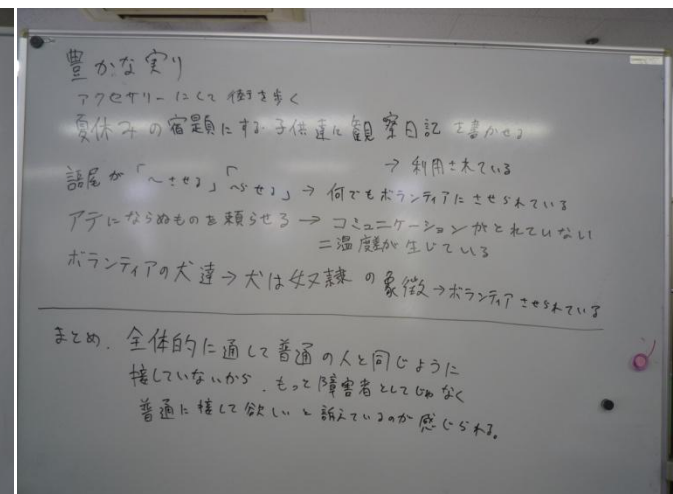 豊かな実り
アクセサリーにして街を歩く
夏休みの宿題にする子供達に観察日記を書かせる
→ 利用されている
語尾が「〜させる」「〜らせる」→ 何でもボランティアにさせられている
アテにならぬものを頼らせる → コミュニケーションがとれていない
=温度差が生じている
ボランティアの犬達→犬は奴隷の象徴→ボランティアさせられている
まとめ. 全体的に通して普通の人と同じように
接していないから、もっと障害者としてじゃなく
普通に接して欲しいと訴えているのが感じられる。